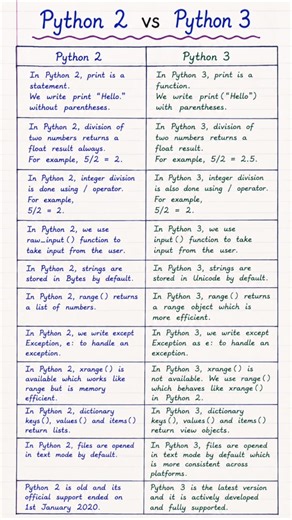 Python 2 vs Python 3
Python 2
Python 3
In Python 2, print is a
statement.
We write print "Hello."
without parentheses.
In Python 3, print is a
function.
We write print ("Hello")
with parentheses.
In Python 2, division of
two numbers returns a
float result always.
For example, 5/2 = 2.
In Python 3, division of
two numbers returns a
float result.
For example, 5/2 = 2.5.
In Python 2, integer division
is done using / operator.
For example,
5/2 = 2.
In Python 3, integer division
is also done using / operator.
For example,
5/2 = 2.
In Python 2, we use
raw_input() function to
take input from the user.
In Python 3, we use
input() function to take
input from the user.
In Python 2, strings are
stored in Bytes by default.
In Python 3, strings are
stored in Unicode by default.
In Python 2, range() returns
a list of numbers.
In Python 3, range() returns
a range object which is
more efficient.
In Python 2, we write except
Exception, e: to handle an
exception.
In Python 3, we write except
Exception as e: to handle an
exception.
In Python 2, xrange() is
available which works like
range but is memory
efficient.
In Python 3, xrange() is
not available. We use range()
which behaves like xrange()
in Python 2.
In Python 2, dictionary
keys(), values() and items()
return lists.
In Python 3, dictionary
keys(), values() and items()
return view objects.
In Python 2, files are opened
in text mode by default.
In Python 3, files are opened
in text mode by default which
is more consistent across
platforms.
Python 2 is old and its
official support ended on
1st January 2020.
Python 3 is the latest version
and it is actively developed
and fully supported.